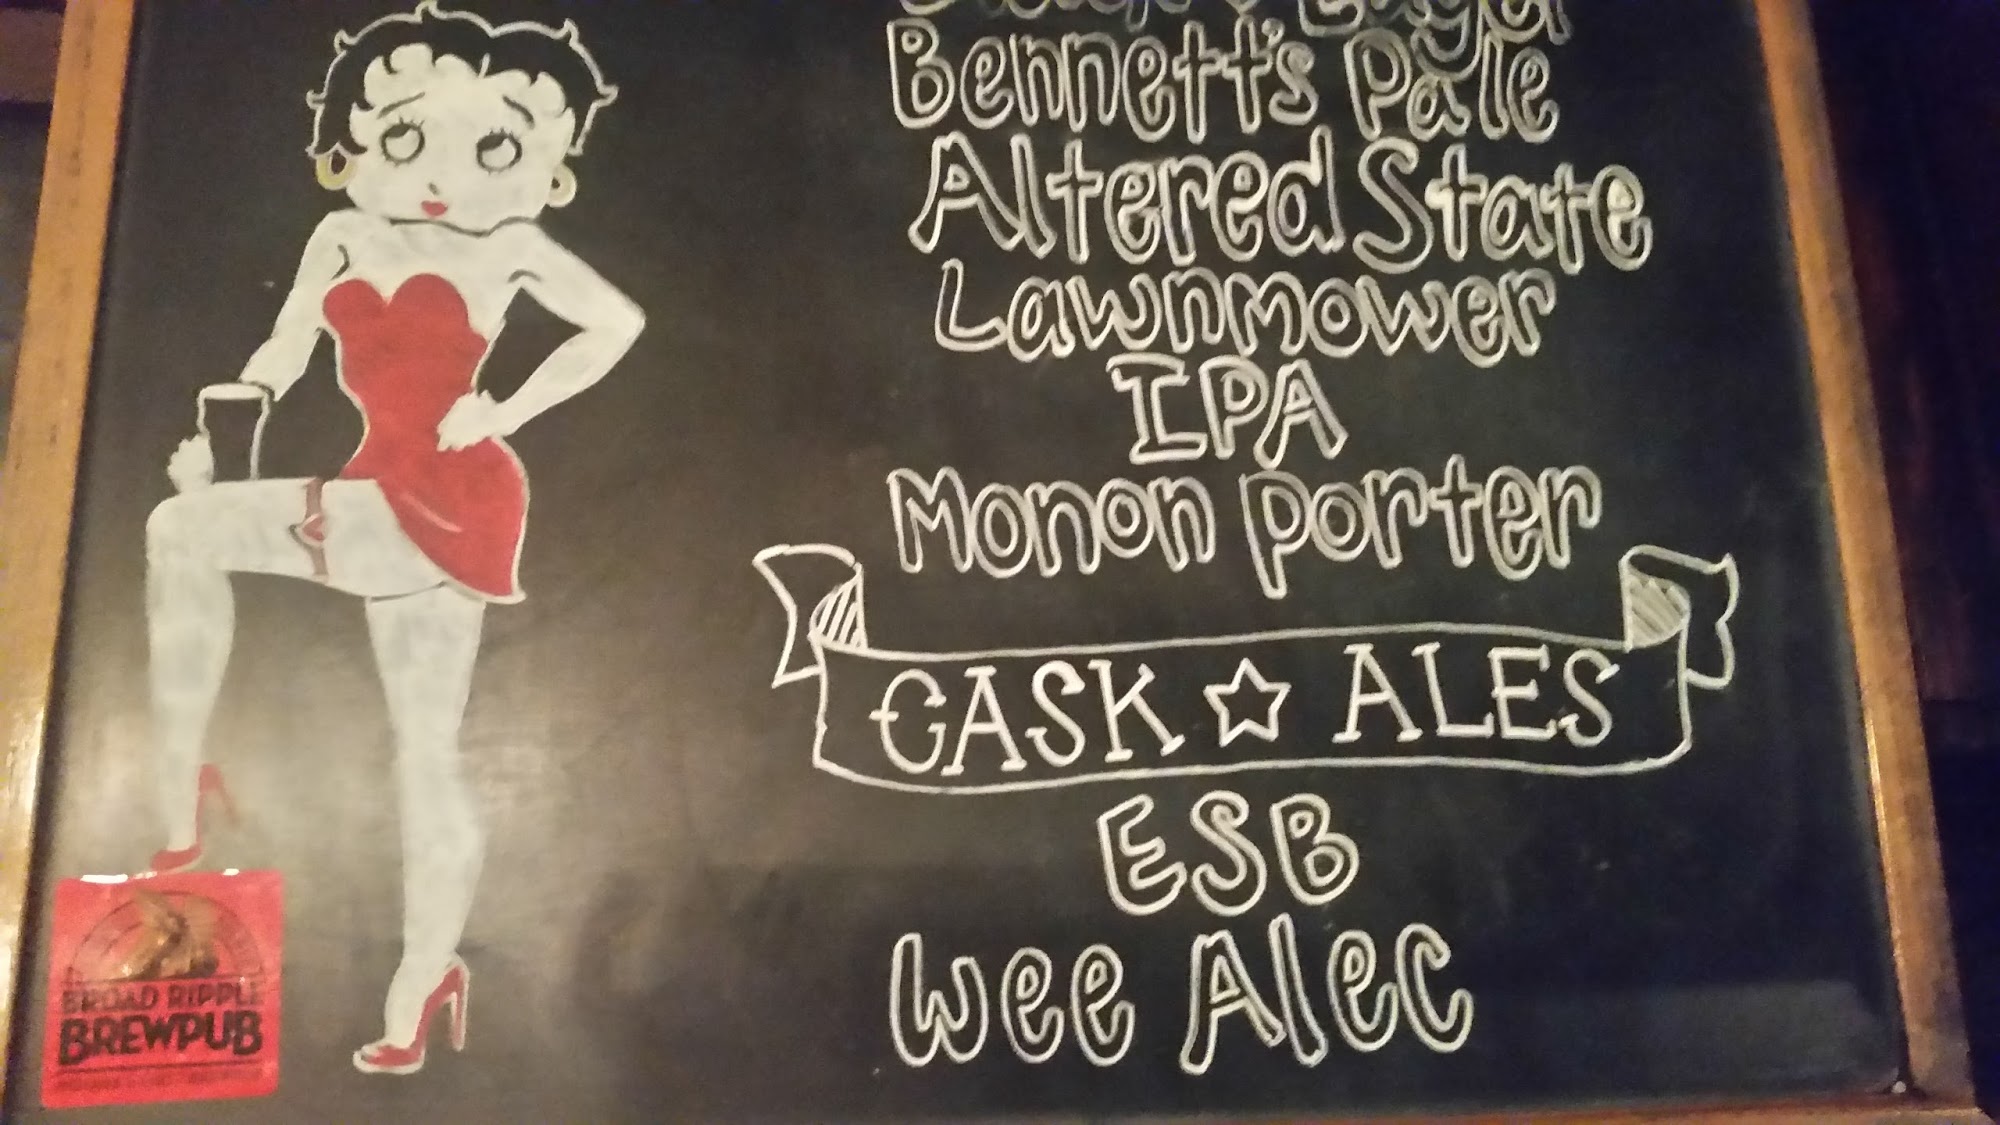 Bennett's Pale
Altered State
Lawnmower
IPA
Monon Porter
CASK ☆ ALES
ESB
Wee Alec
BROAD RIPPLE
BREWPUB